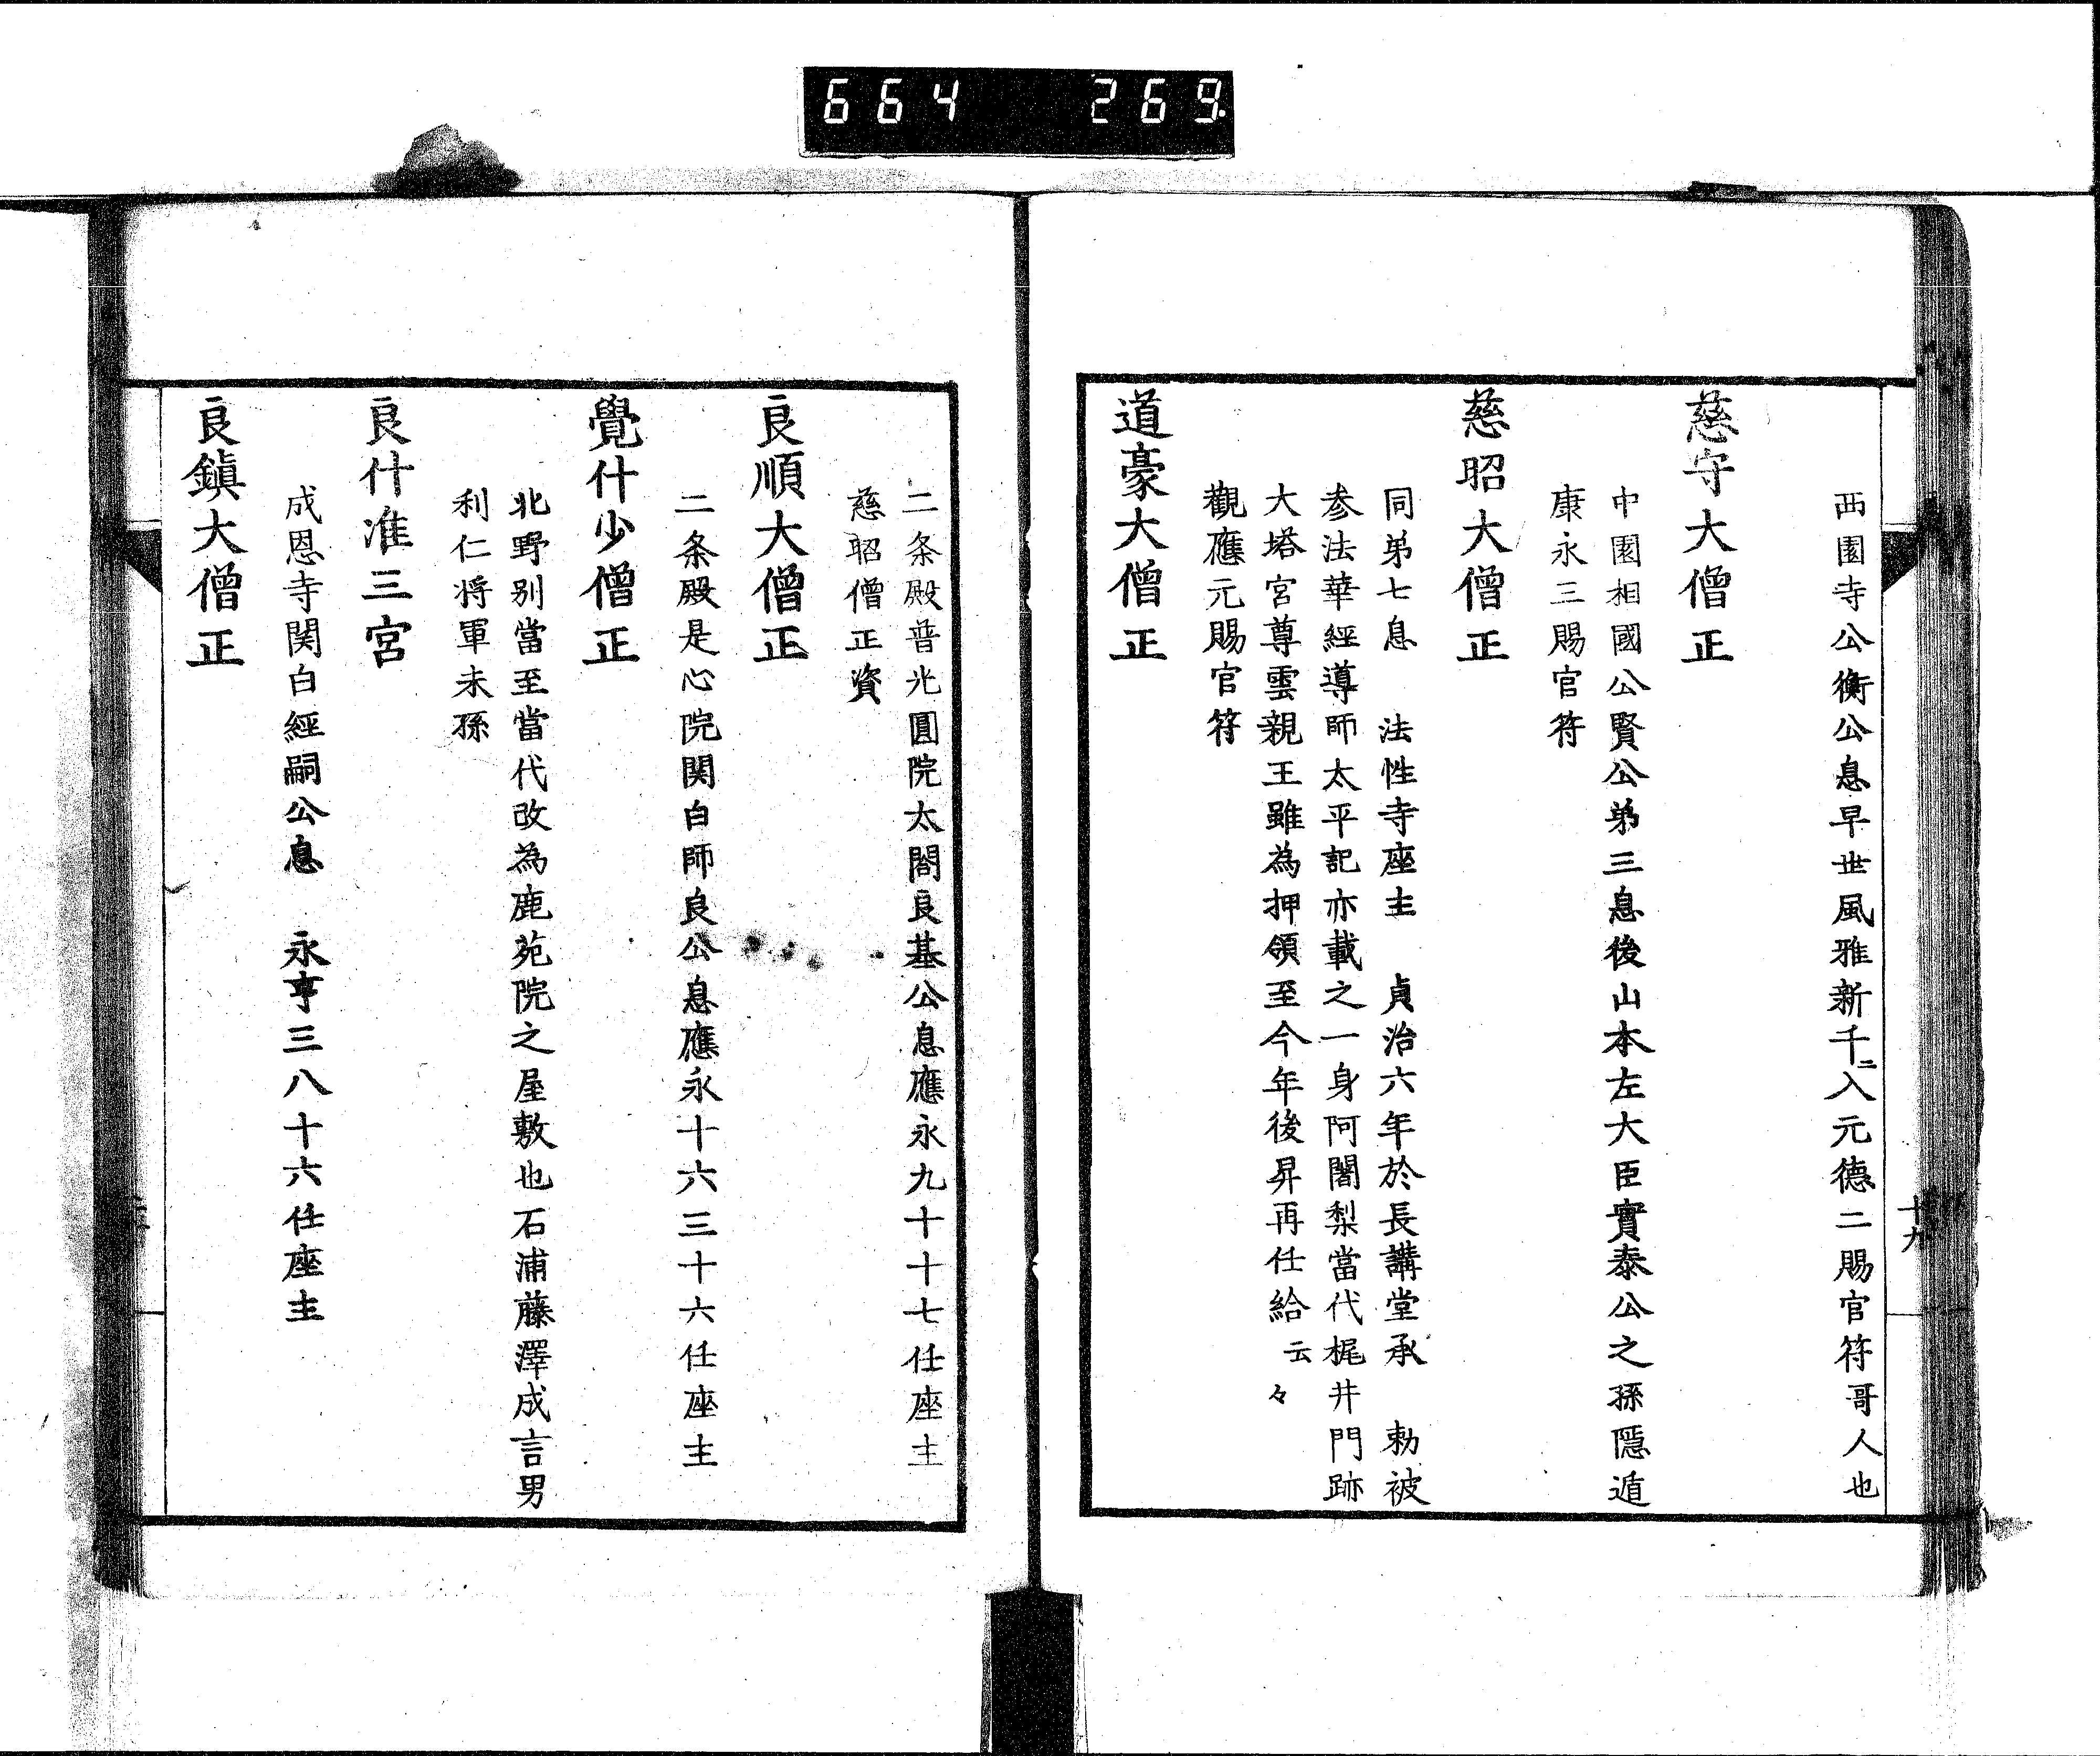 664 269
西園寺公衡公息早世風雅新千ニ入元德二賜官符哥人也
慈守大僧正
中園相國公賢公弟三息後山本左大臣實泰公之孫隱遁
康永三賜官符
慈昭大僧正
同弟七息 法性寺座主 貞治六年於長講堂承 勅被
参法華經導師太平記亦載之一身阿闍梨當代梶井門跡
大塔宮尊雲親王雖為押領至今年後昇再任給云々
觀應元賜官符
道豪大僧正
十九
二条殿普光圓院太閤良基公息應永九十十七任座主
慈昭僧正資
良順大僧正
二条殿是心院関白師良公息應永十六三十六任座主
覺什少僧正
北野別當至當代改為鹿苑院之屋敷也石浦藤澤成言男
利仁将軍末孫
良什准三宮
成恩寺関白經嗣公息 永亨三八十六任座主
良鎮大僧正